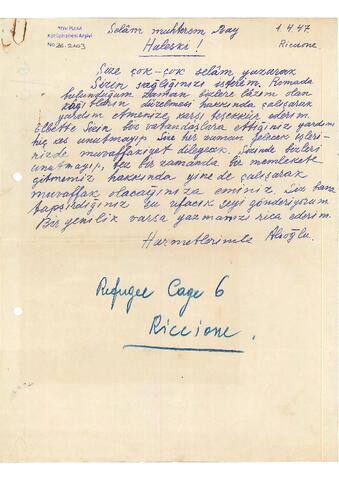 Kütüphanesi Arşivi
No 26.2003
Selâm muhterem Bay
Haleski!
1.4.47
Riccione
Size çok-çok selâm yazarak
Sizin sağlığınızı isterim. Romada
bulunduğum zaman bizlere lâzım olan
kâğıtların düzelmesi hakkında çalışarak
yardım etmenize karşı teşekkür ederim.
Elbette Sizin biz vatandaşlara ettiğiniz yardım
hiç kes unutmayız. Size her zaman gelecek işleri-
nizde muvaffakiyet dileyecek. Sizinde bizleri
unutmayış, tez bir zamanda bir memlekete
gitmemiz hakkında yine de çalışarak
muvaffak olacağınıza eminiz. Siz bana
tapşırdığınız bu ufacık şeyi gönderiyorum
Bir yenilik varsa yazmanızı rica ederim.
Hürmetlerimle Alioğlu.
Refugee Cage 6
Riccione.